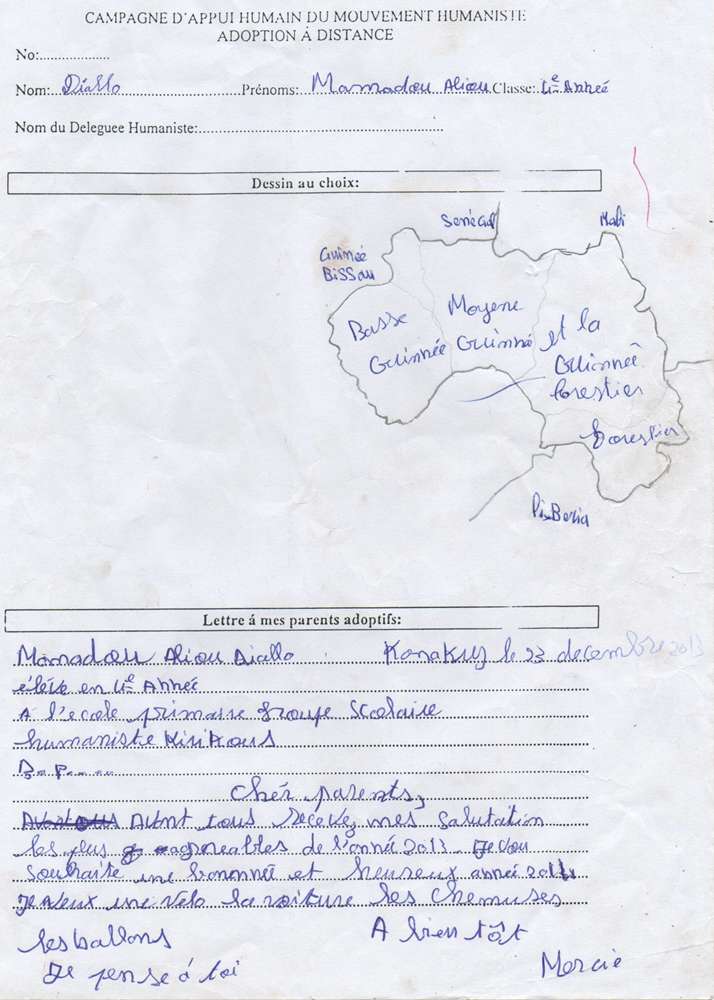 CAMPAGNE D'APPUI HUMAIN DU MOUVEMENT HUMANISTE
ADOPTION Á DISTANCE
No:..................
Nom: Diallo Prénoms: Mamadou Aliou Classe: 4e Année
Nom du Deleguee Humaniste:
Dessin au choix:
Senégal
Mali
Guinée
BiSSau
Basse
Guinnée
Moyene
Guinné
et la
Guinneé
forestier
forestier
LiBeria
Lettre á mes parents adoptifs:
Mamadou Aliou Diallo Konakry le 23 decembre 2013
élève en 4e Année
A l'ecole primaire Groupe Scolaire
humaniste Kirikous
B. P.....
Chér parents,
Avant tous recevez mes salutation
les plus agreables de l'anné 2013. Je vou
souhaite une bonnonnée et heureux année 2014
Je veux une velo la voiture les chemises
les ballons A bien tôt
Je pense á toi Mercie